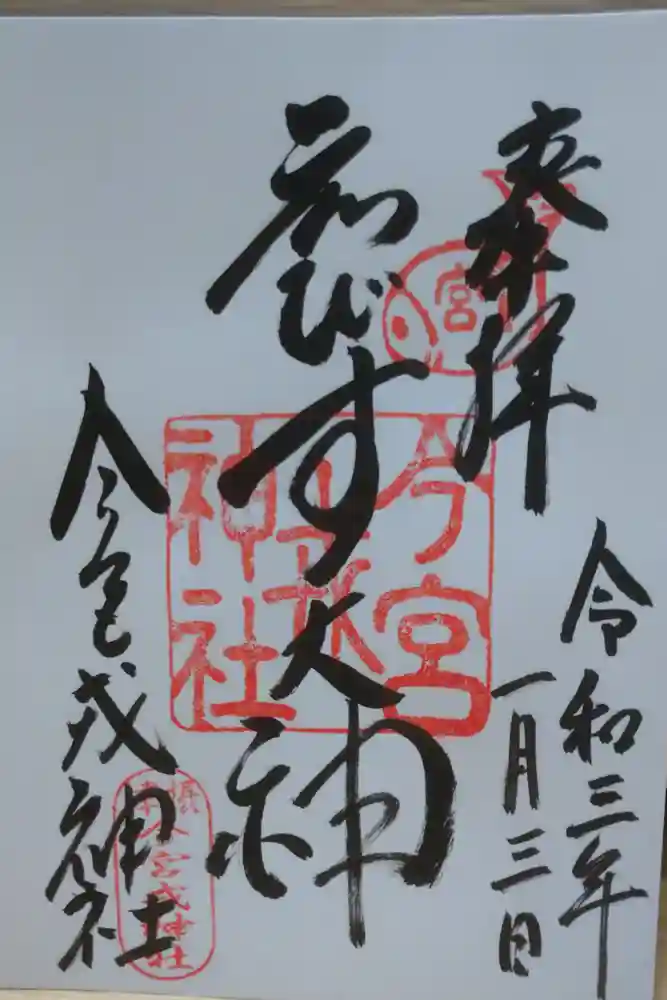 奉拝
令和三年
一月三日
ゑびす大神
今宮戎神社
宮
今宮
神社
今宮戎神社